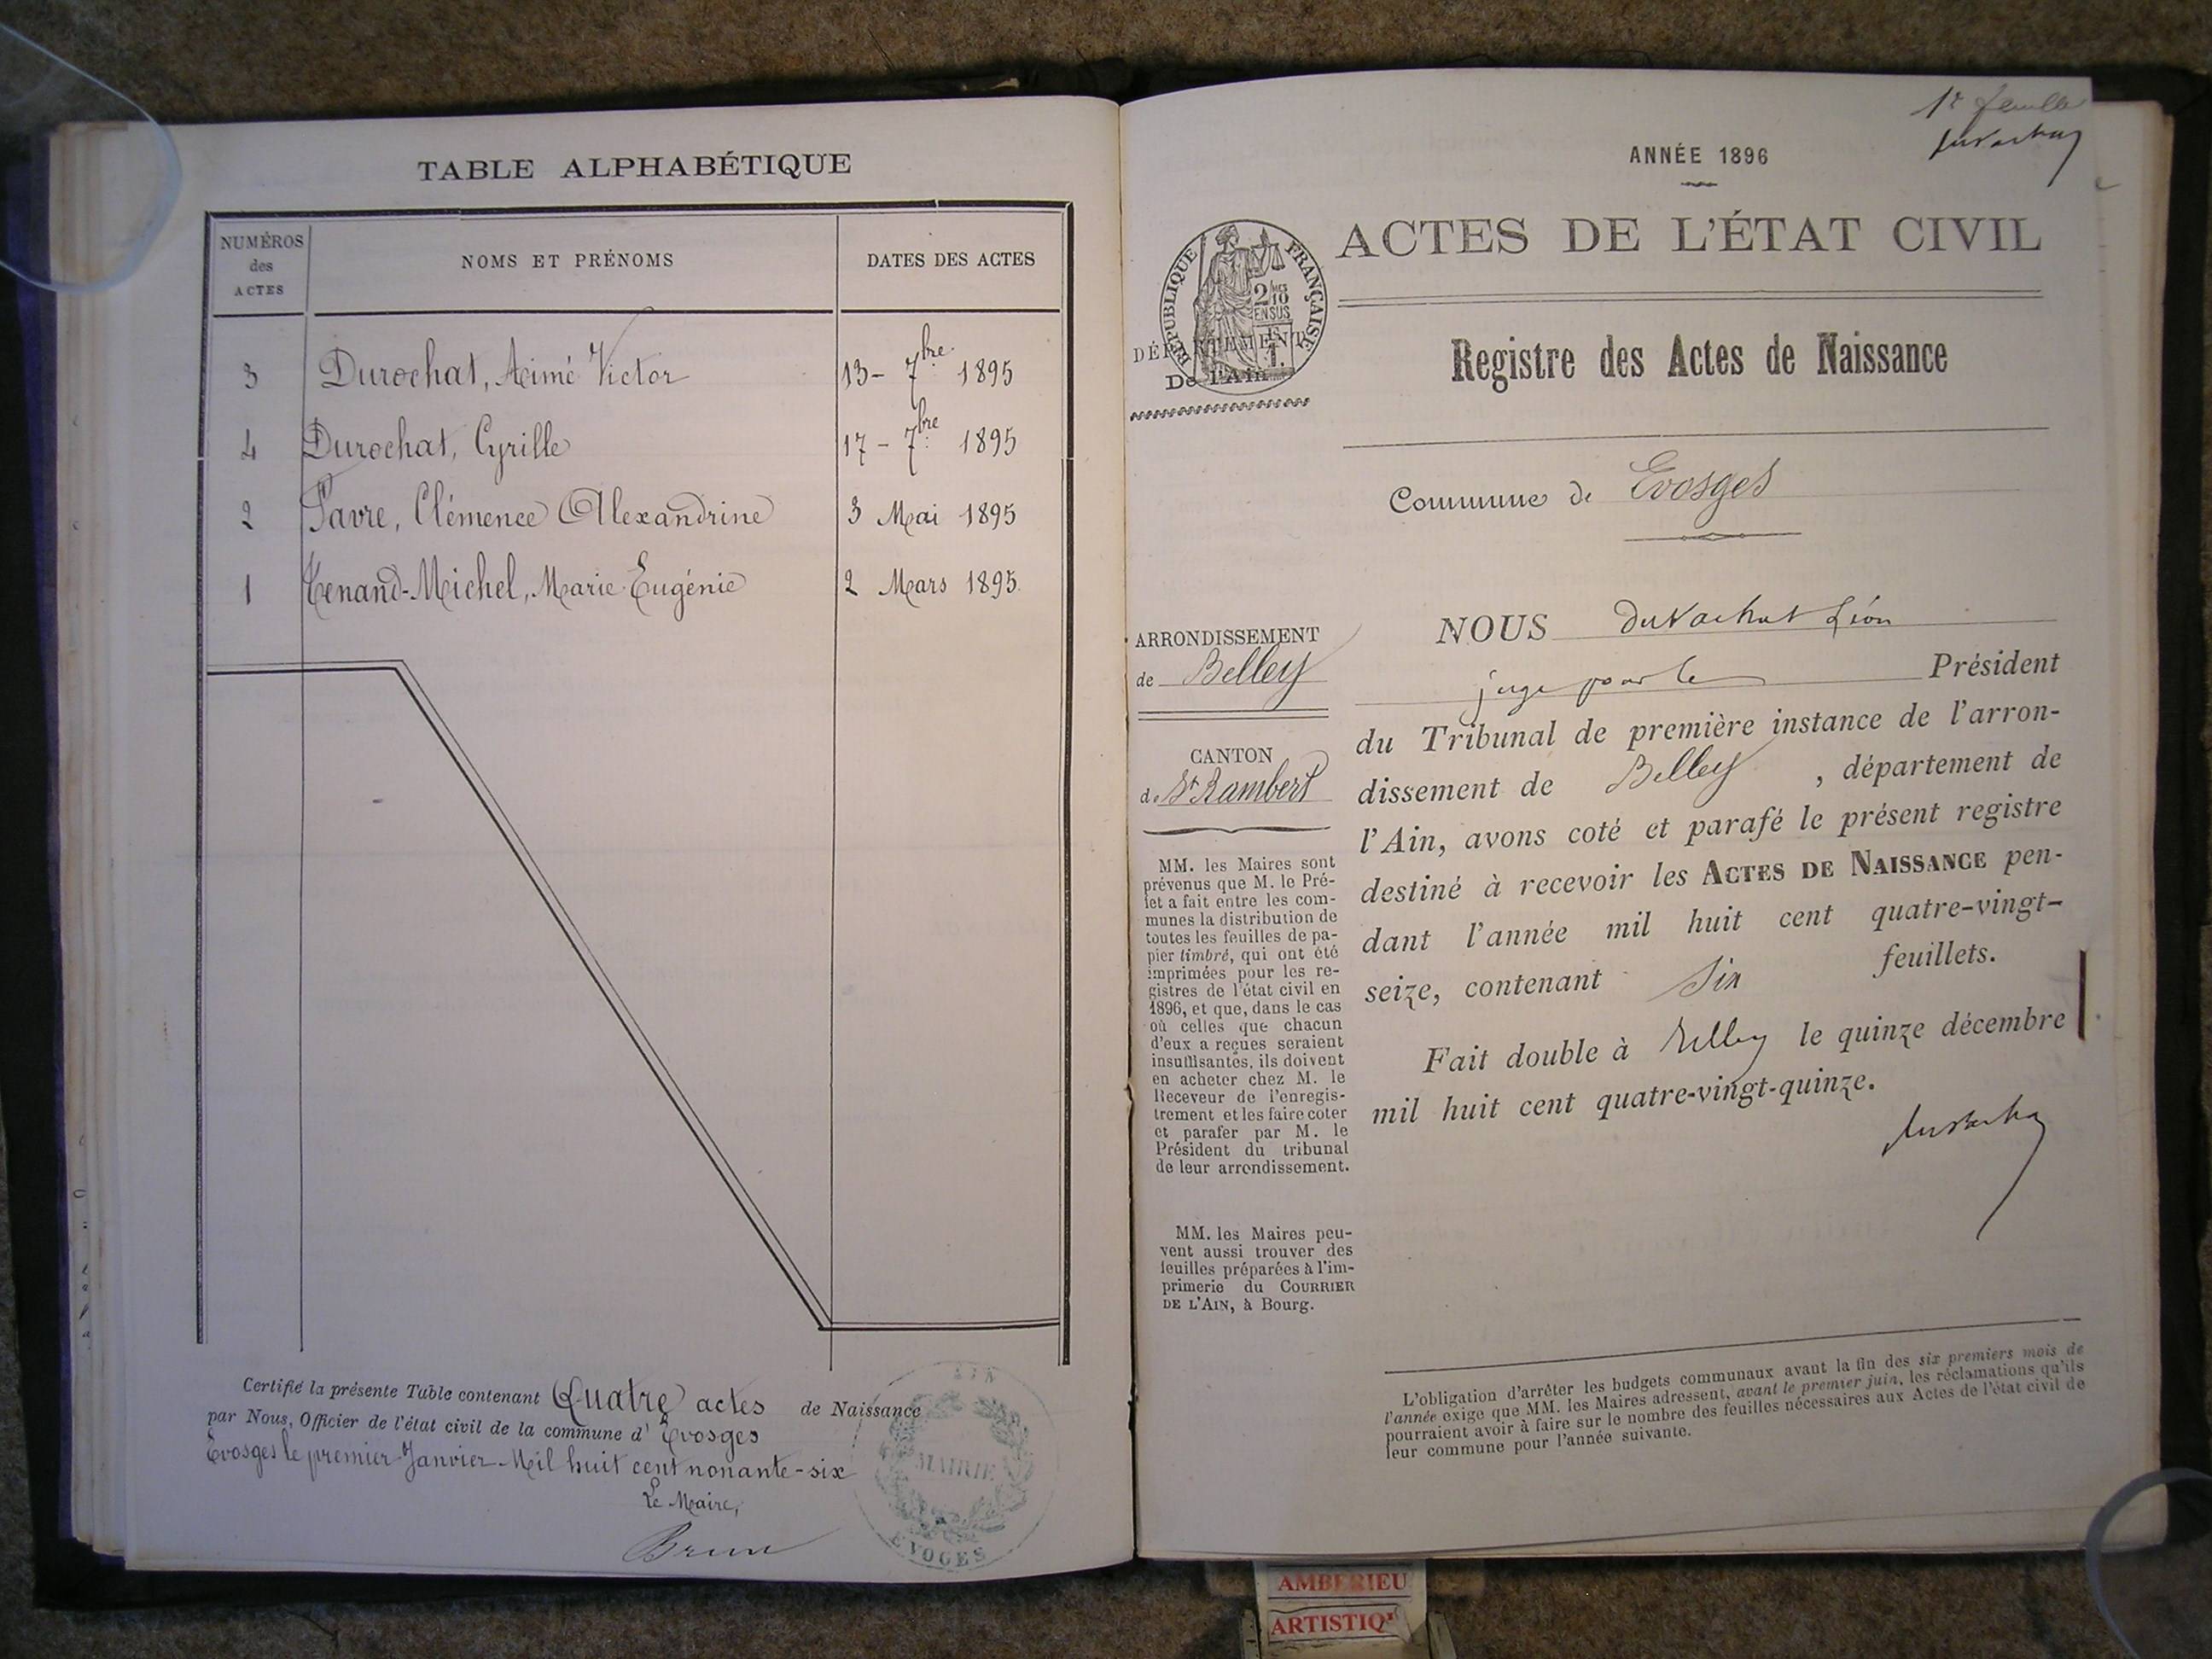 TABLE ALPHABÉTIQUE
NUMÉROS
des
ACTES
NOMS ET PRÉNOMS
DATES DES ACTES
3 Durochat, Aimé Victor 13 - 7bre 1895
4 Durochat, Cyrille 17 - 7bre 1895
2 Favre, Clémence Alexandrine 3 Mai 1895
1 Tenand-Michel, Marie Eugénie 2 Mars 1895
Certifié la présente Table contenant Quatre actes de Naissance
par Nous, Officier de l'état civil de la commune d' Evosges
Evosges le premier Janvier Mil huit cent nonante-six
Le Maire,
Brun
AIN
MAIRIE
EVOGES
1re feuille
ANNÉE 1896
ACTES DE L'ÉTAT CIVIL
RÉPUBLIQUE FRANÇAISE
2/10mes
EN SUS
DÉPARTEMENT
De l'Ain
Registre des Actes de Naissance
Commune de Evosges
ARRONDISSEMENT
de Belley
CANTON
de St Rambert
MM. les Maires sont
prévenus que M. le Pré-
fet a fait entre les com-
munes la distribution de
toutes les feuilles de pa-
pier timbré, qui ont été
imprimées pour les re-
gistres de l'état civil en
1896, et que, dans le cas
où celles que chacun
d'eux a reçues seraient
insuffisantes, ils doivent
en acheter chez M. le
Receveur de l'enregis-
trement et les faire coter
et parafer par M. le
Président du tribunal
de leur arrondissement.
MM. les Maires peu-
vent aussi trouver des
feuilles préparées à l'im-
primerie du COURRIER
DE L'AIN, à Bourg.
NOUS Duvachat Léon
juge pour le Président
du Tribunal de première instance de l'arron-
dissement de Belley, département de
l'Ain, avons coté et parafé le présent registre
destiné à recevoir les ACTES DE NAISSANCE pen-
dant l'année mil huit cent quatre-vingt-
seize, contenant Six feuillets.
Fait double à Belley le quinze décembre
mil huit cent quatre-vingt-quinze.
L'obligation d'arrêter les budgets communaux avant la fin des six premiers mois de
l'année exige que MM. les Maires adressent, avant le premier juin, les réclamations qu'ils
pourraient avoir à faire sur le nombre des feuilles nécessaires aux Actes de l'état civil de
leur commune pour l'année suivante.
AMBERIEU
ARTISTIQ